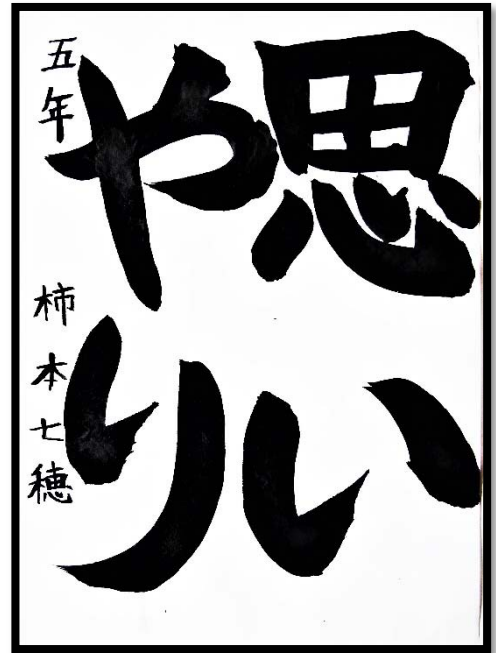 思い
やり
五年 柿本七穂